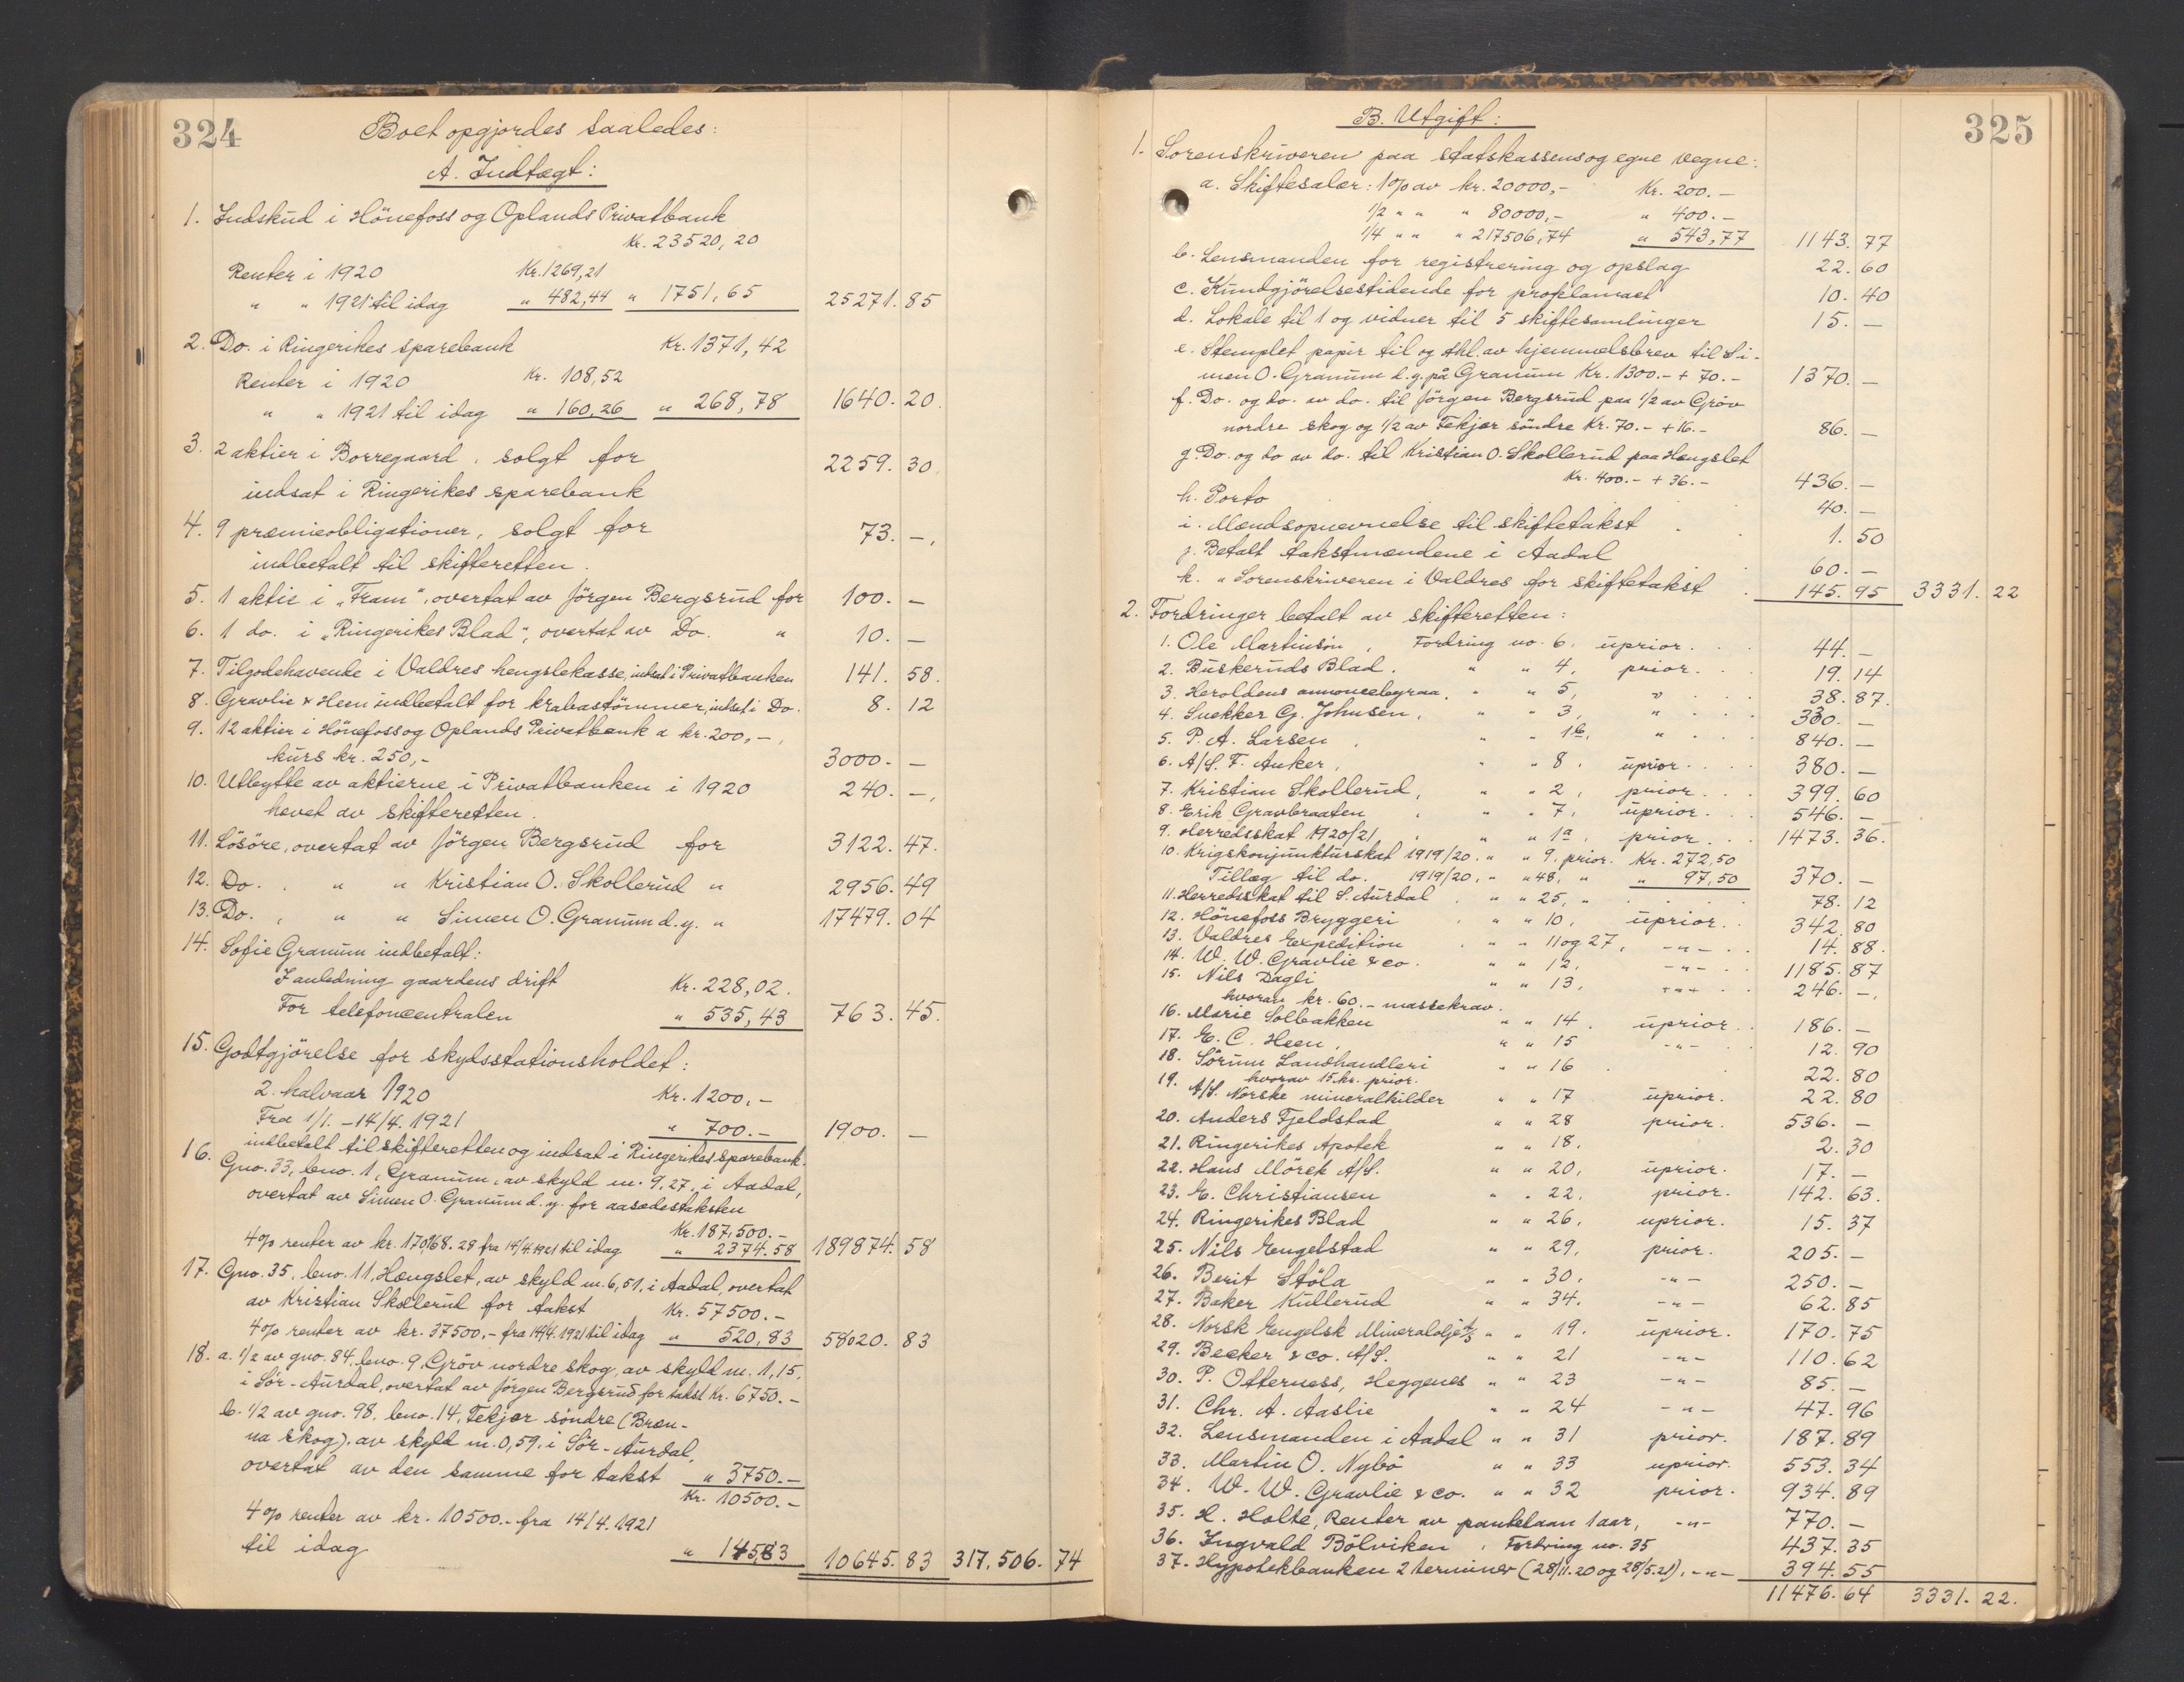 324
Boet opgjordes saaledes:
A. Indtægt:
1. Indskud i Hönefoss og Oplands Privatbank
Kr. 23520,20
Renter i 1920 Kr. 1269,21
" " 1921 til idag " 482,44 " 1751,65 25271. 85
2. Do. i Ringerikes sparebank Kr. 1371,42
Renter i 1920 Kr. 108,52
" " 1921 til idag " 160,26 " 268,78 1640. 20.
3. 2 aktier i Borregaard, solgt for 2259. 30.
indsat i Ringerikes sparebank
4. 9 præmieobligationer, solgt for 73. —.
indbetalt til skifteretten.
5. 1 aktie i "Fram", overtat av Jörgen Bergsrud for 100. —
6. 1 do. i "Ringerikes Blad", overtat av Do. " 10. —
7. Tilgodehavende i Valdres hengslekasse, indsat i Privatbanken 141. 58.
8. Gravlie & Heen indbetalt for krabastömmer, indsat i Do. 8. 12
9. 12 aktier i Hönefoss og Oplands Privatbank a kr. 200,—,
kurs kr. 250,— 3000. —
10. Utbytte av aktierne i Privatbanken i 1920 240. —,
hevet av skifteretten.
11. Lösöre, overtat av Jörgen Bergsrud for 3122. 47.
12. Do. , " " Kristian O. Skollerud " 2956. 49
13. Do. , " " Simen O. Granum d.y. " 17479. 04
14. Sofie Granum indbetalt:
I anledning gaardens drift Kr. 228,02.
For telefoncentralen " 535,43 763. 45.
15. Godtgjörelse for skydsstationsholdet:
2. halvaar 1920 Kr. 1200.—
Fra 1/1. – 14/4. 1921 " 700.— 1900. —
indbetalt til skifteretten og indsat i Ringerikes sparebank.
16. Gno. 33, bno. 1, Granum, av skyld m. 9,27, i Aadal,
overtat av Simen O. Granum d.y. for aasædestaksten
Kr. 187,500.—
4% renter av kr. 170,168.29 fra 14/4 1921 til idag " 2374.58 189874. 58
17. Gno. 35, bno. 11, Hængslet, av skyld m. 6,51, i Aadal, overtat
av Kristian Skollerud for takst Kr. 57500.—
4% renter av kr. 37500,— fra 14/4. 1921 til idag " 520,83 58020. 83
18. a. 1/2 av gno. 84, bno. 9, Gröv nordre skog, av skyld m. 1,15,
i Sör-Aurdal, overtat av Jörgen Bergsrud for takst Kr. 6750.—
b. 1/2 av gno. 98, bno. 14, Fekjær söndre (Bræn-
na skog), av skyld m. 0,59, i Sör-Aurdal,
overtat av den samme for takst " 3750.—
Kr. 10500.—
4% renter av kr. 10500.— fra 14/4. 1921
til idag " 145,83 10645. 83 317,506. 74
325
B. Utgift:
1. Sorenskriveren paa statskassens og egne vegne:
a. Skiftesalær: 1% av kr. 20000,— Kr. 200.—
1/2 " " " 80000,— " 400.—
1/4 " " " 217506,74 " 543,77 1143. 77
b. Lensmanden for registrering og opslag 22. 60
c. Kundgjörelsestidende for proklamaet 10. 40
d. Lokale til 1 og vidner til 5 skiftesamlinger 15. —
e. Stemplet papir til og thl. av hjemmelsbrev til Si-
men O. Granum d.y. på Granum Kr. 1300.— + 70.— 1370. —
f. Do. og do. av do. til Jörgen Bergsrud paa 1/2 av Gröv
nordre skog og 1/2 av Fekjær söndre Kr. 70.— + 16.— 86. —
g. Do. og do av do. til Kristian O. Skollerud paa Hængslet
Kr. 400.— + 36.— 436. —
h. Porto 40. —
i. Mændsopnævnelse til skiftetakst 1. 50
j. Betalt takstmændene i Aadal 60. —
k. " Sorenskriveren i Valdres for skiftetakst 145. 95 3331. 22
2. Fordringer betalt av skifteretten:
1. Ole Martinson, Fordring no. 6, uprior. 44. —
2. Buskeruds Blad. " " 4, prior. 19. 14
3. Heroldens annoncebyraa. " " 5, " 38. 87.
4. Snekker G. Johnsen, " " 3, " 330. —
5. P. A. Larsen, " " 1b, " 840. —
6. A/S. F. Anker, " " 8, uprior. 380. —
7. Kristian Skollerud, " " 2, prior. 399. 60
8. Erik Gravbraaten " " 7, uprior. 546. —
9. Herredsskat 1920/21, " " 1a, prior. 1473. 36.
10. Krigskonjunkturskat 1919/20. " " 9, prior. Kr. 272,50
Tillæg til do. 1919/20, " " 48, " " 97,50 370. —
11. Herredsskat til S. Aurdal " " 25, " 78. 12
12. Hönefoss Bryggeri " " 10, uprior. 342. 80
13. Valdres Expedition " " 11 og 27, —"— 14. 88.
14. W. W. Gravlie & co. " " 12, —"— 1185. 87
15. Nils Dagli " " 13, —"— 246. —.
hvorav kr. 60.— massekrav.
16. Marie Solbakken " " 14. uprior. 186. —
17. E. C. Heen, " " 15 —"— 12. 90
18. Sörum Landhandleri " " 16 22. 80
hvorav 15 kr. prior.
19. A/S. Norske mineralkilder " " 17 uprior. 22. 80
20. Anders Fjeldstad " " 28 prior. 536. —
21. Ringerikes Apotek " " 18. 2. 30
22. Hans Mörck A/S. " " 20, uprior. 17. —
23. E. Christiansen " " 22. prior. 142. 63.
24. Ringerikes Blad " " 26, uprior. 15. 37
25. Nils Engelstad " " 29, prior. 205. —
26. Berit Stöla " " 30. —"— 250. —
27. Baker Kullerud " " 34. —"— 62. 85
28. Norsk Engelsk Mineralolje A/S " " 19. uprior. 170. 75
29. Becker & co. A/S. " " 21 —"— 110. 62
30. P. Otterness, Heggenes " " 23 —"— 85. —
31. Chr. A. Aaslie " " 24 —"— 47. 96
32. Lensmanden i Aadal " " 31 prior. 187. 89
33. Martin O. Nybö " " 33 uprior. 553. 34
34. W. W. Gravlie & co. " " 32 prior. 934. 89
35. H. Holte, Renter av pantelaan 1 aar, —"— 770. —
36. Ingvald Bölviken, Fordring no. 35 437. 35
37. Hypotekbanken 2 terminer (28/11.20 og 28/5.21). —"— 394. 55
11476. 64 3331. 22.